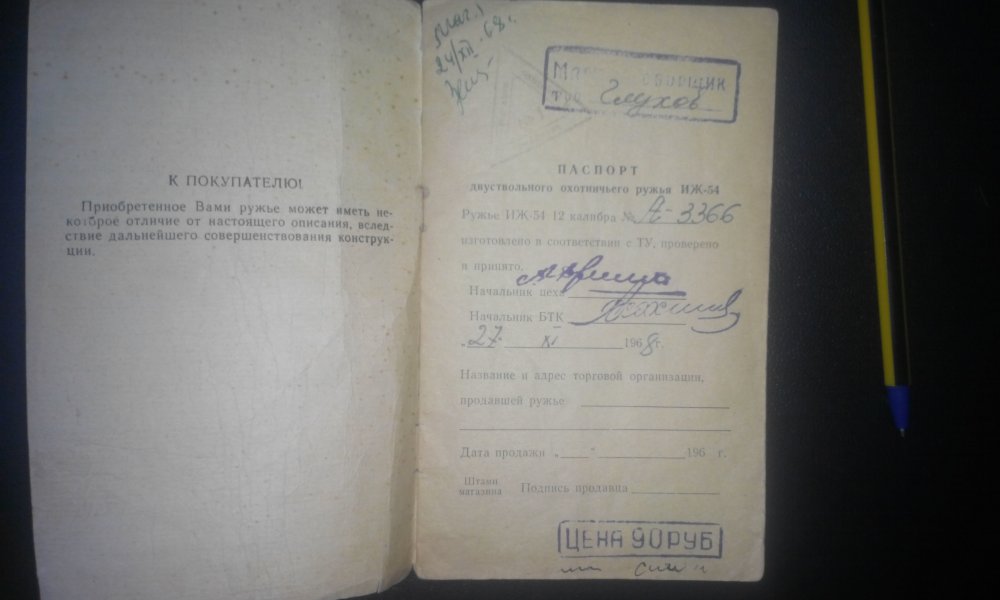 К ПОКУПАТЕЛЮ!
Приобретенное Вами ружье может иметь не-
которое отличие от настоящего описания, вслед-
ствие дальнейшего совершенствования конструк-
ции.
24/XII-68г.
Глухов
ПАСПОРТ
двуствольного охотничьего ружья ИЖ-54
Ружье ИЖ-54 12 калибра № А-3366
изготовлено в соответствии с ТУ, проверено
и принято.
Начальник цеха
Начальник БТК
„27" XI 1968г.
Название и адрес торговой организации,
продавшей ружье
Дата продажи „ " 196 г.
Штамп
магазина Подпись продавца
ЦЕНА 90 РУБ